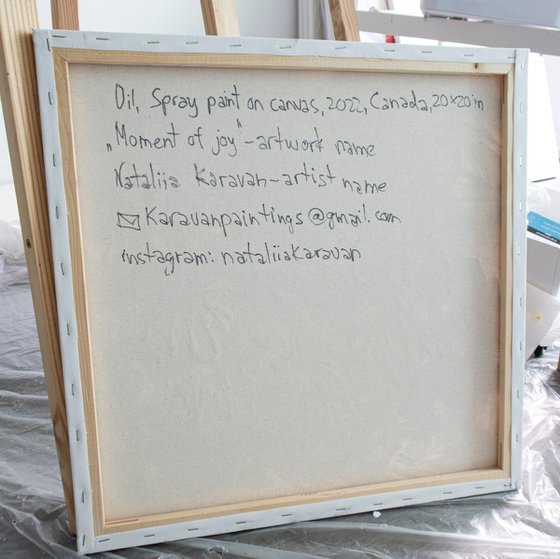 Oil, Spray paint on canvas, 2022, Canada, 20×20 in
„Moment of joy" - artwork name
Nataliia Karavan - artist name
Karavanpaintings@gmail.com
instagram: nataliiakaravan